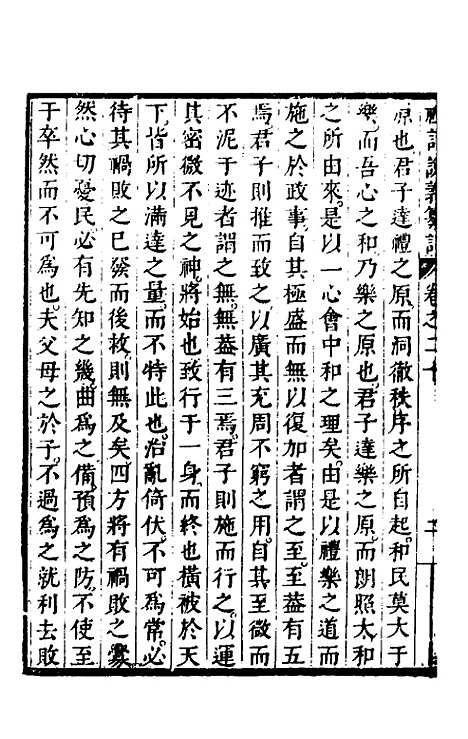 禮記說義纂訂 卷之二十
原也君子達禮之原而洞徹秩序之所自起和民莫大于
樂而吾心之和乃樂之原也君子達樂之原而朗照太和
之所由來是以一心會中和之理矣由是以禮樂之道而
施之於政事自其極盛而無以復加者謂之至至蓋有五
焉君子則推而致之以廣其充周不窮之用自其至微而
不泥于迹者謂之無無蓋有三焉君子則施而行之以運
其密微不見之神將始也致行于一身而終也橫被於天
下皆所以滿達之量而不特此也治亂倚伏不可為常必
待其禍敗之已發而後救則無及矣四方將有禍敗之釁
然心切憂民必有先知之幾曲為之備預為之防不使至
于卒然而不可為也夫父母之於子不過為之就利去敗